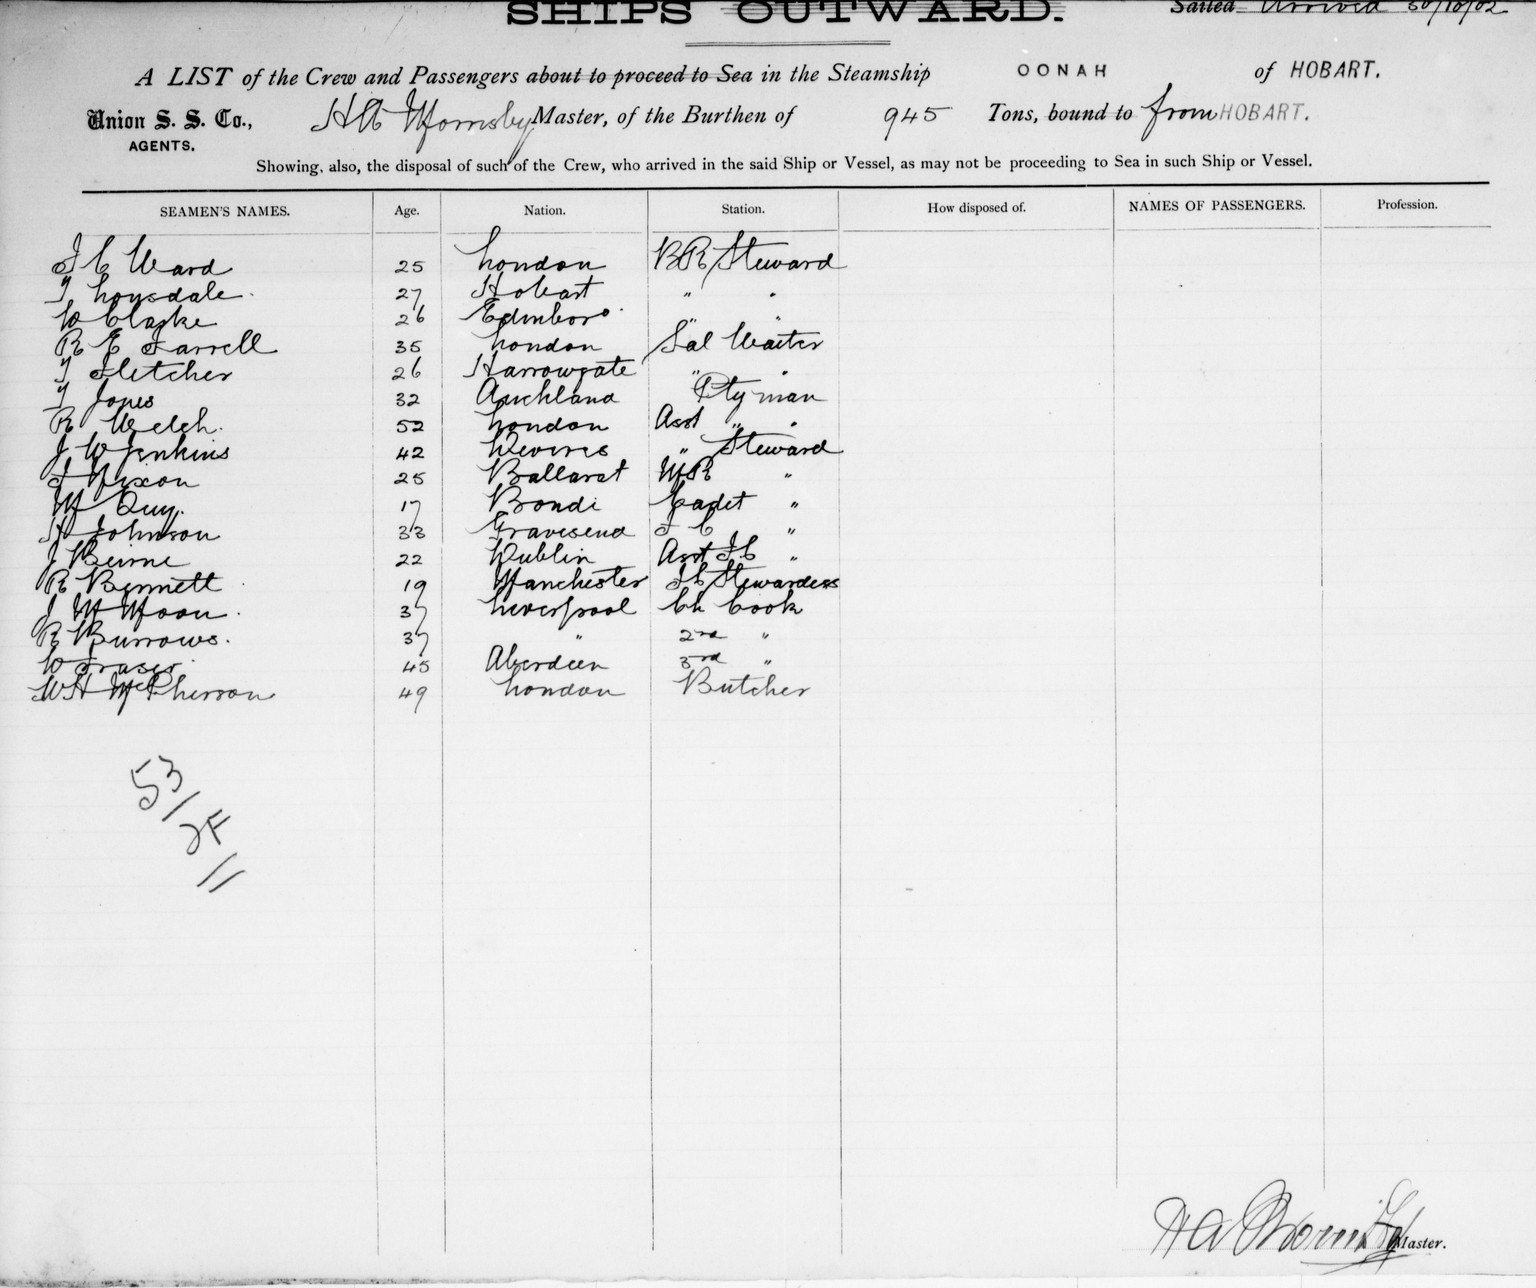 SHIPS OUTWARD.
Sailed Arrived 30/10/02
A LIST of the Crew and Passengers about to proceed to Sea in the Steamship OONAH of HOBART.
Union S. S. Co., H A Mornsby Master, of the Burthen of 945 Tons, bound to from HOBART.
AGENTS.
Showing, also, the disposal of such of the Crew, who arrived in the said Ship or Vessel, as may not be proceeding to Sea in such Ship or Vessel.
SEAMEN'S NAMES. Age. Nation. Station. How disposed of. NAMES OF PASSENGERS. Profession.
J C Ward 25 London BR Steward
T Longsdale 27 Hobart " "
W Clarke 26 Edinboro " "
R E Farrell 35 London Sal Waiter
T Fletcher 26 Harrowgate " "
T Jones 32 Auckland Ptyman
R Welch 52 London Asst " "
J W Jenkins 42 Devires " Steward
J Nixon 25 Ballarat MR "
M Quy. 17 Bondi Cadet "
H Johnson 33 Gravesend F C "
J Beirne 22 Dublin Asst F.C "
R Bennett 19 Manchester F C Stewardess
J M Moon 37 Liverpool Ch Cook
R Burrows. 37 " 2nd "
W Fraser 45 Aberdeen 3rd "
W H McPherson 49 London Butcher
53/
2F
//
H A
Master.